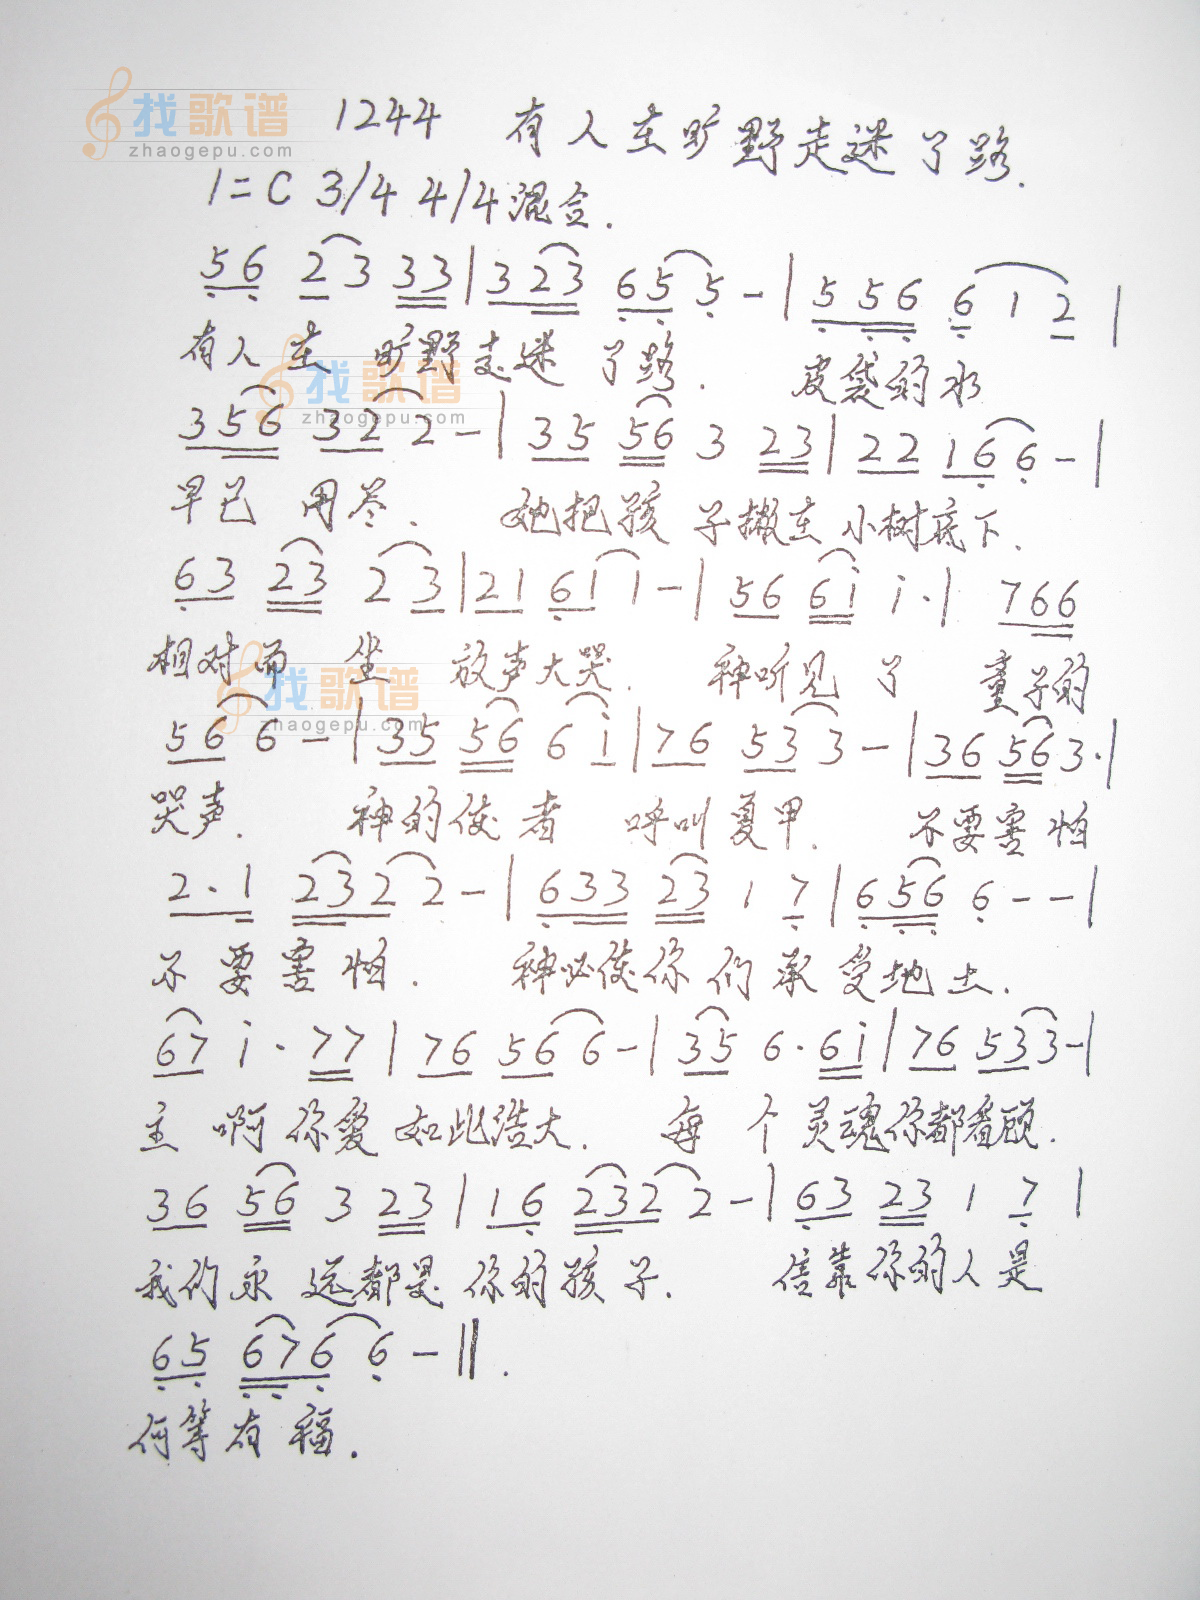 找歌谱
zhaogepu.com
1244 有人在旷野走迷了路.
1=C 3/4 4/4混合.
56 23 33|3 23 65 5-|5 56 6 1 2|
有人在 旷野走迷 了路. 皮袋的水
找歌谱
zhaogepu.com
3 56 32 2-|35 56 3 23|22 16 6-|
早已 用尽. 她把孩 子撇在 小树底下.
63 23 2 3|21 61 1-|56 6i i·| 766
相对而 坐 放声大哭. 神听见 了 童子的
找歌谱
zhaogepu.com
56 6-|35 56 6 i|76 53 3-|36 56 3·|
哭声. 神的使 者 呼叫夏甲. 不要害 怕
2·1 232 2-|633 23 1 7|656 6--|
不 要害 怕. 神必使你 们 承 受地土.
67 i·77|76 56 6-|35 6·6i|76 53 3-|
主 啊你爱 如此浩大. 每 个灵魂你都看顾.
36 56 3 23|16 232 2-|63 23 1 7|
我们永 远都是 你的孩 子. 信靠你的人是
65 676 6-‖.
何等有 福.